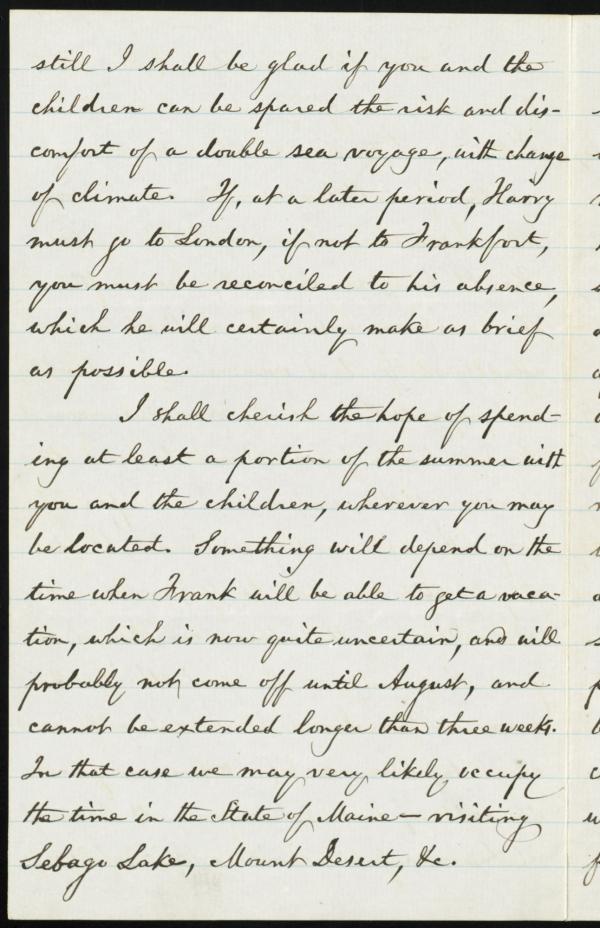 still I shall be glad if you and the
children can be spared the risk and dis-
comfort of a double sea voyage, with change
of climate. If, at a later period, Harry
must go to London, if not to Frankfort,
you must be reconciled to his absence,
which he will certainly make as brief
as possible.
I shall cherish the hope of spend-
ing at least a portion of the summer with
you and the children, wherever you may
be located. Something will depend on the
time when Frank will be able to get a vaca-
tion, which is now quite uncertain, and will
probably not come off until August, and
cannot be extended longer than three weeks.
In that case we may very likely occupy
the time in the State of Maine — visiting
Sebago Lake, Mount Desert, &c.